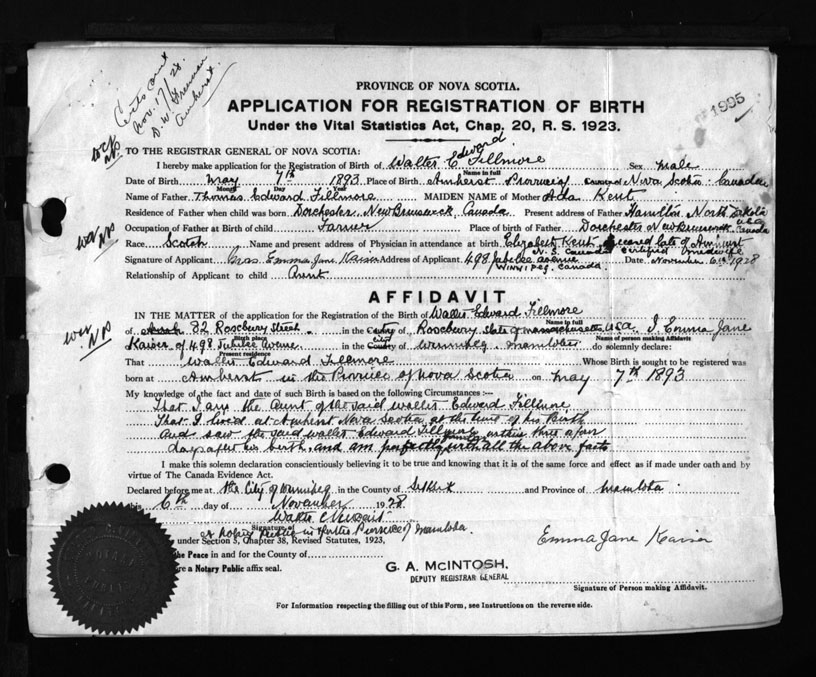 Certs out
Nov. 17/28.
Amherst.
1995
PROVINCE OF NOVA SCOTIA.
APPLICATION FOR REGISTRATION OF BIRTH
Under the Vital Statistics Act, Chap. 20, R. S. 1923.
TO THE REGISTRAR GENERAL OF NOVA SCOTIA:
I hereby make application for the Registration of Birth of Walter Edward Fillmore Sex male
Name in full
Date of Birth May 7th 1893 Place of Birth Amherst Province Nova Scotia Canada
Month Day Year
Name of Father Thomas Edward Fillmore MAIDEN NAME of Mother Ada Kent
Residence of Father when child was born Dorchester New Brunswick Canada Present address of Father Hamilton North Dakota U.S.A.
Occupation of Father at Birth of child Farmer Place of birth of Father Dorchester New Brunswick Canada
Race Scotch Name and present address of Physician in attendance at birth Elizabeth Kent, deceased late of Amherst
N. S. Canada certified midwife
Signature of Applicant Mrs. Emma Jane Kaiser Address of Applicant 498 Jubilee avenue Date November 6th 1928
Winnipeg. Canada.
Relationship of Applicant to child Aunt
AFFIDAVIT
IN THE MATTER of the application for the Registration of the Birth of Walter Edward Fillmore
Name in full
of 82 Roseberry Street in the County of Roseberry State of Massachusetts USA I Emma Jane
Birth place Name of person making Affidavit
Kaiser of 498 Jubilee Avenue in the County of Winnipeg Manitoba do solemnly declare:
Present residence
That Walter Edward Fillmore Whose Birth is sought to be registered was
born at Amherst in the Province of Nova Scotia on May 7th 1893
My knowledge of the fact and date of such Birth is based on the following Circumstances :—
That I am the Aunt of the said Walter Edward Fillmore
That I lived at Amherst Nova Scotia at the time of his Birth
and saw the said Walter Edward Fillmore within three or four
days after his birth and am perfectly familiar with all the above facts
I make this solemn declaration conscientiously believing it to be true and knowing that it is of the same force and effect as if made under oath and by
virtue of The Canada Evidence Act.
Declared before me at the City of Winnipeg in the County of and Province of Manitoba
this 6th day of November 1928
Walter
Signature of
a Notary Public in & for the Province of Manitoba
under Section 5, Chapter 38, Revised Statutes, 1923,
the Peace in and for the County of
Emma Jane Kaiser
G. A. McINTOSH,
DEPUTY REGISTRAR GENERAL
re a Notary Public affix seal.
Signature of Person making Affidavit.
For Information respecting the filling out of this Form, see Instructions on the reverse side.